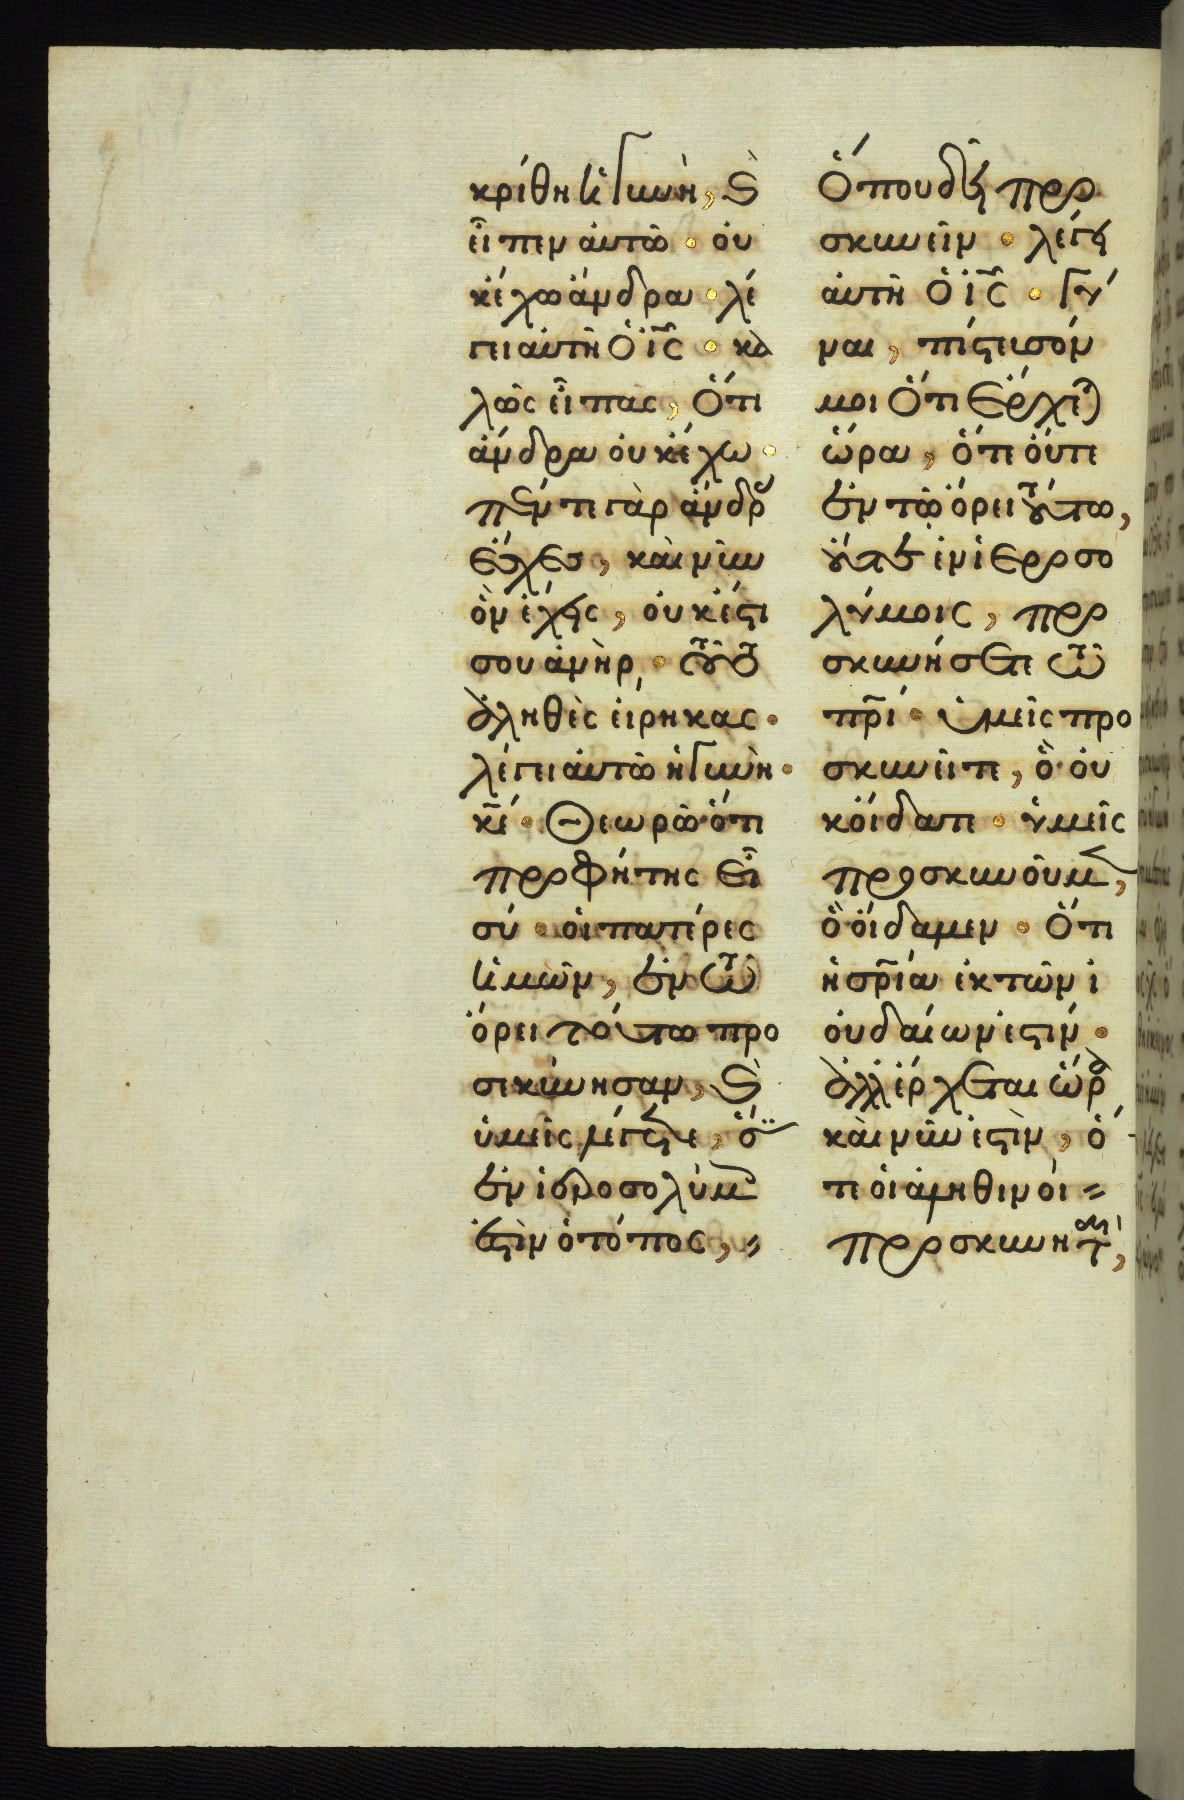 κρίθη ἡ γυνὴ, ϗ
εἶπεν αὐτῶ · οὐ
κ ἔχω ἄνδρα · λέ
γει αὐτῆ ὁ ἰ̅ς · κα
λῶς εἶπας, ὅτι
ἄνδρα οὐκ ἔχω ·
πέντε γὰρ ἄνδρ
ἔσχες, καὶ νῦν
ὃν ἔχεις, οὐκ ἔστι
σου ἀνὴρ · τοῦτο
ἀληθὲς εἴρηκας ·
λέγει αὐτῶ ἡ γυνὴ ·
κ̅ε · θεωρῶ ὅτι
προφήτης εἶ
σύ · οἱ πατέρες
ἡμῶν, ἐν τῶ
ὄρει τούτω προ
σεκύνησαν, ϗ
ὑμεῖς λέγετε, ὅτι
ἐν ἱεροσολύμ
ἐστὶν ὁ τόπος,
ὅπου δεῖ προ
σκυνεῖν · λέγει
αὐτῆ ὁ ἰ̅ς · γύ
ναι, πίστευσόν
μοι ὅτι ἔρχεται
ὥρα, ὅτε οὔτε
ἐν τῶ ὄρει τούτω,
οὔτε ἐν ἱεροσο
λύμοις, προ
σκυνήσετε τῶ
π̅ρι · ὑμεῖς προ
σκυνεῖτε, ὃ οὐ
κ οἴδατε · ἡμεῖς
προσκυνοῦμ,
ὃ οἴδαμεν · ὅτι
ἡ σ̅ρια ἐκ τῶν ἰ
ουδαίων ἐστίν ·
ἀλλ ἔρχεται ὥρα
καὶ νῦν ἐστὶν, ὅ
τε οἱ ἀληθινοὶ
προσκυνηταὶ,